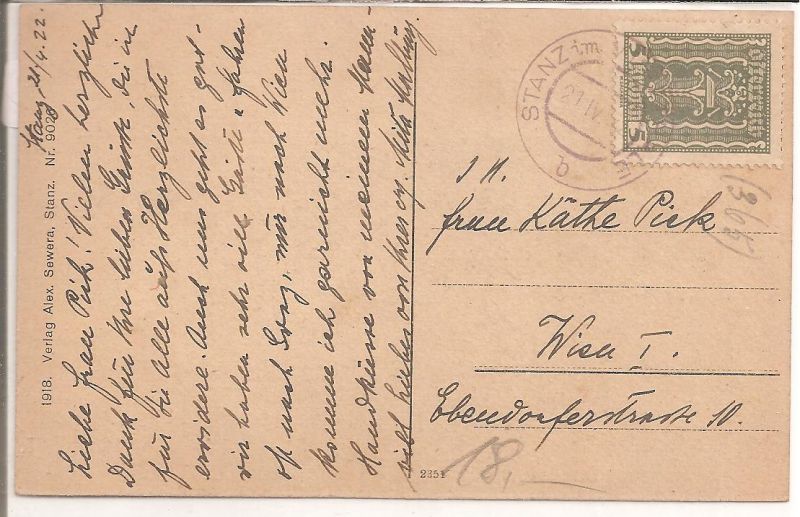 Stanz, 21/4.22.
Liebe Frau Pick! Vielen herzlichen
Dank für Ihre lieben Grüße, die ich
für Sie alle aufs Herzlichste
erwidere. Auch uns geht es gut -
wir haben sehr viel Gäste u fahren
oft nach Graz, nur nach Wien
komme ich garnicht mehr.
Handküsse von meinem Mann
viel Liebes von Ihrer
1918. Verlag Alex. Sewera, Stanz. Nr. 9020
STANZ i.m.
21 IV
b
5 5
S. H.
Frau Käthe Pick
Wien I.
Ebendorferstrasse 10.
2351
18,—